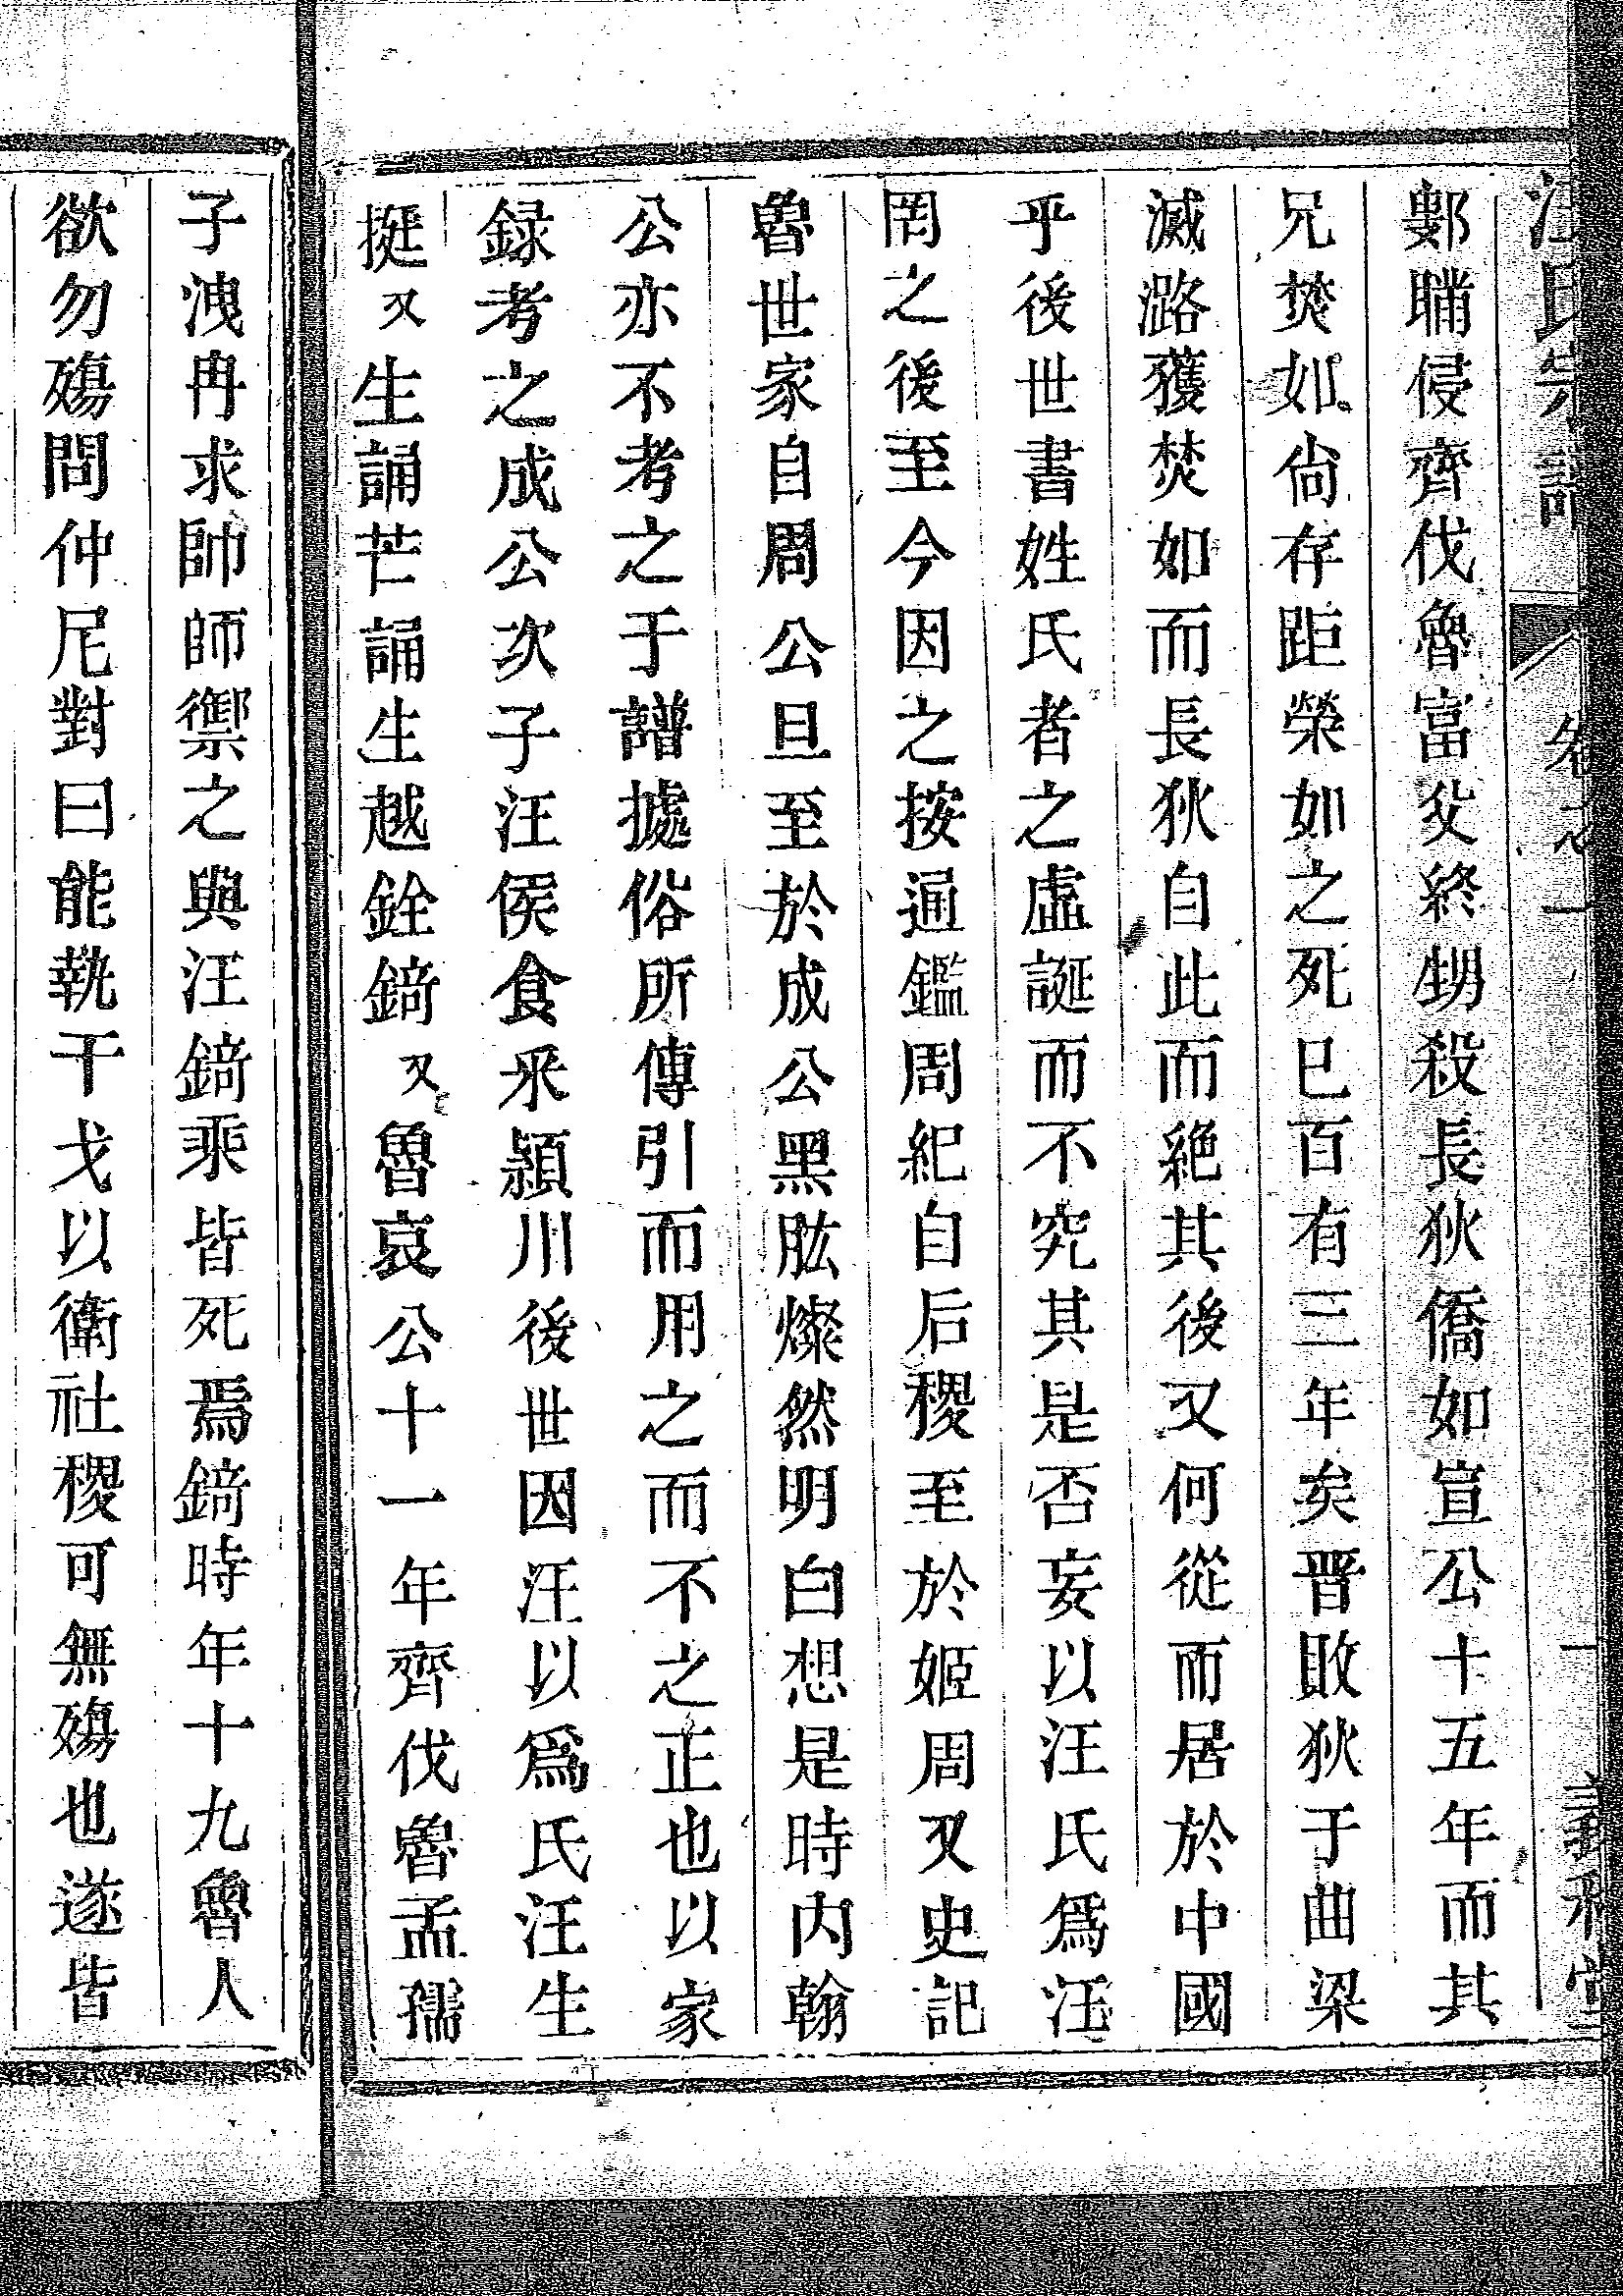 汪氏宗譜 卷之一 一
鄋瞞侵齊伐魯富父終甥殺長狄僑如宣公十五年而其
兄焚如尙存距榮如之死巳百有三年矣晋敗狄于曲梁
滅潞獲焚如而長狄自此而絶其後又何從而居於中國
乎後世書姓氏者之虛誕而不究其是否妄以汪氏爲汪
罔之後至今因之按通鑑周紀自后稷至於姬周又史記
魯世家自周公旦至於成公黑肱燦然明白想是時内翰
公亦不考之于譜據俗所傳引而用之而不之正也以家
録考之成公次子汪侯食釆潁川後世因汪以爲氏汪生
挺又生誦芒誦生越銓錡又魯哀公十一年齊伐魯孟孺
子洩冉求帥師禦之與汪錡乘皆死焉錡時年十九魯人
欲勿殤問仲尼對曰能執干戈以衛社稷可無殤也遂皆